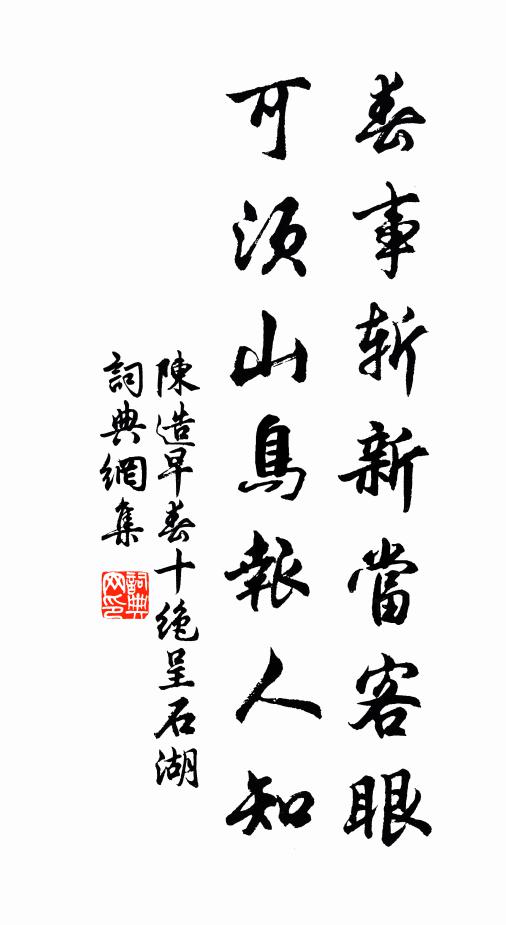 春事斬新當客眼
可須山鳥報人知
陳造早春十絶呈石湖
詞典網集
詞典网印